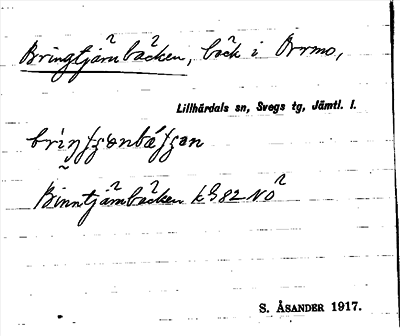 Bringtjärnbäcken, bäck i Orrmo,
Lillhärdals sn, Svegs tg, Jämtl. l.
Binntjärnbäcken kg 82 NO
S. ÅSANDER 1917.